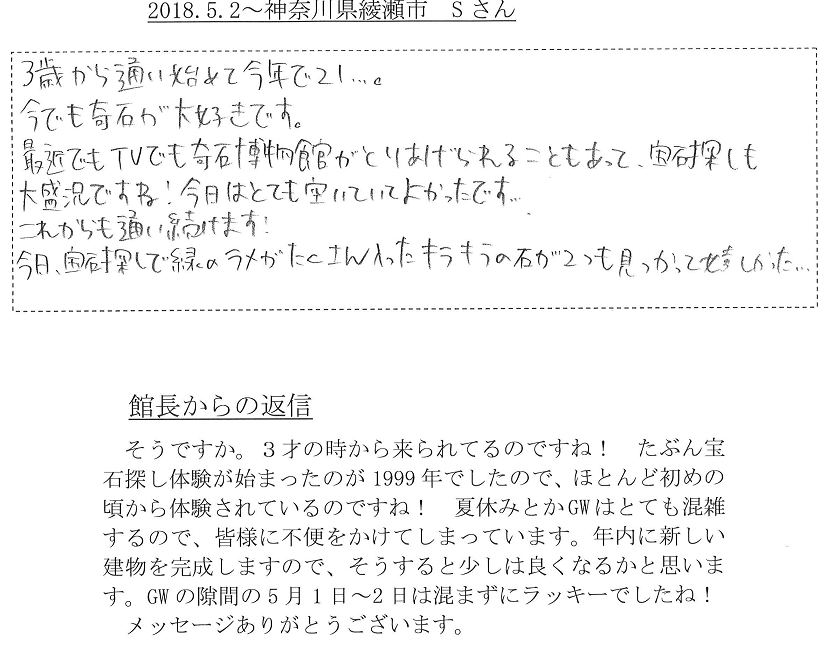 2018.5.2～神奈川県綾瀬市　Sさん
3歳から通い始めて今年で21…。
今でも奇石が大好きです。
最近でもTVでも奇石博物館がとりあげられることもあって、宝石探しも
大盛況ですね！今日はとても空いていてよかったです…
これからも通い続けます！
今日、宝石探しで緑のラメがたくさん入ったキラキラの石が2つも見つかって嬉しかった…
館長からの返信
そうですか。３才の時から来られてるのですね！　たぶん宝
石探し体験が始まったのが 1999 年でしたので、ほとんど初めの
頃から体験されているのですね！　夏休みとかGWはとても混雑
するので、皆様に不便をかけてしまっています。年内に新しい
建物を完成しますので、そうすると少しは良くなるかと思いま
す。GWの隙間の５月１日～２日は混まずにラッキーでしたね！
メッセージありがとうございます。